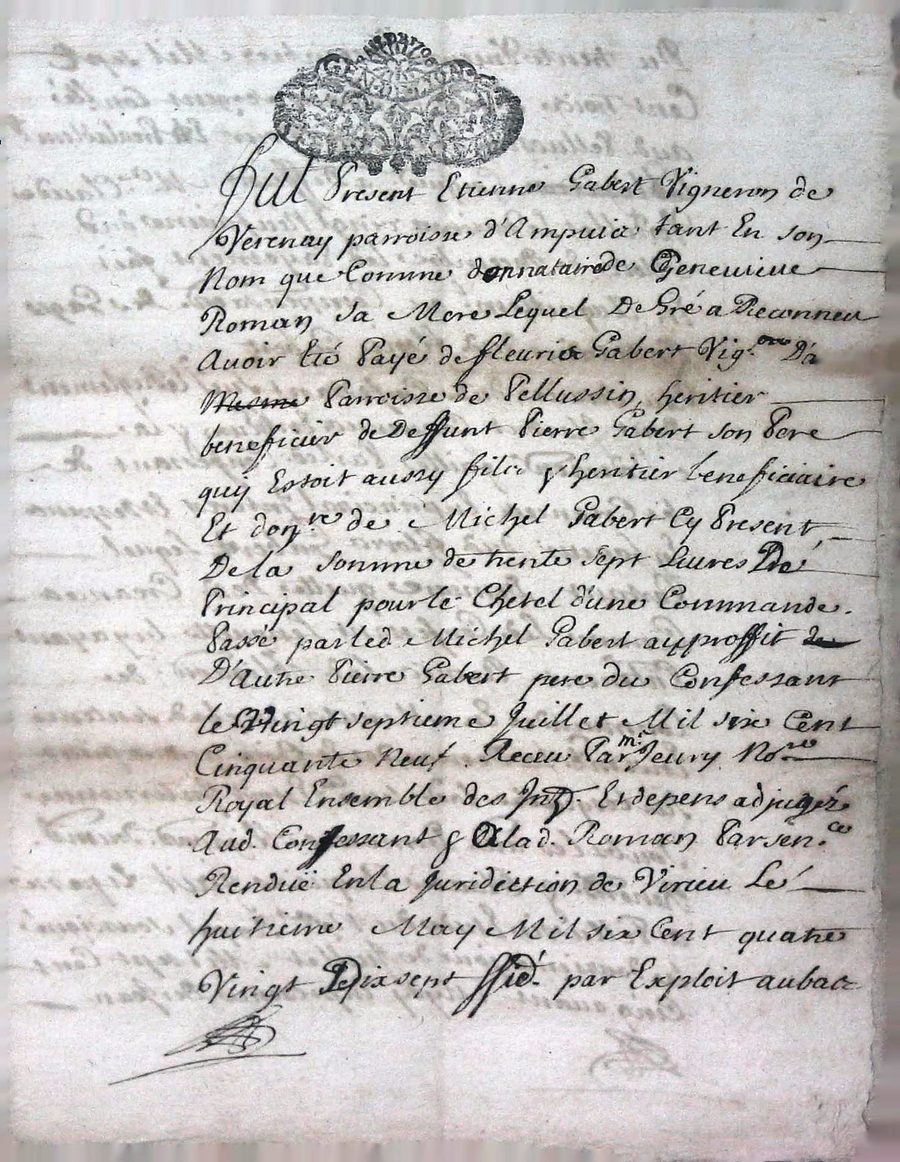 GEN DE LION
Fut Present Etienne Gabert Vigneron de
Verenay parroisse d'Ampuic tant En son
Nom que Comme donnataire de Genevieve
Roman sa Mere Lequel De Gré a Reconneu
Avoir Eté Payé de fleurie Gabert Vig.on Da
Mesme Parroisse de Pellussin, heritier
beneficier de Deffunt Pierre Gabert son Pere
quy Estoit aussy fils & heritier beneficiaire
Et don.re de Michel Gabert Cy Present,
De la somme de trente sept Livres De
Principal pour le Chetel d'une Commande
Passé par led Michel Gabert au proffit de
D'autre Pierre Gabert pere du Confessant
le Vingt septieme Juillet Mil six Cent
Cinquante Neuf. Receu Par m.e Jeury No.re
Royal Ensemble des Int. Et depens adjugés
Aud. Confessant & A lad. Roman Par sen.ce
Renduë En la Juridiction de Virieu Le
huitieme May Mil six Cent quatre
Vingt Dix sept par Exploit au bac